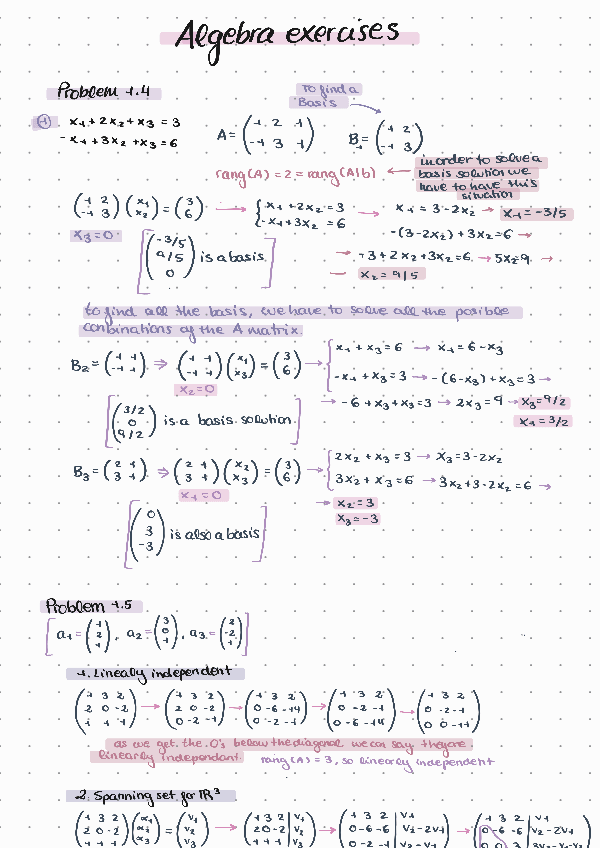 Algebra exercises
Problem 1.4
To find a
Basis
① x₁+2x₂+x₃ = 3
-x₁+3x₂+x₃=6
A= (1 2 1
-1 3 1)
B= (1 2
-1 3)
rang(A) = 2 = rang(A|b) ←
in order to solve a
basis solution we
have to have this
situation
(1 2
-1 3) (x₁
x₂) = (3
6) → { x₁+2x₂=3
-x₁+3x₂=6 → x₁ = 3-2x₂ → x₁=-3/5
-(3-2x₂)+3x₂=6 →
x₃=0
[(-3/5
9/5
0) is a basis]
→ -3+2x₂+3x₂=6 → 5x₂=9 →
x₂=9/5
to find all the basis, we have to solve all the posible
conbinations of the A matrix.
B₂= (1 1
-1 1) ⇒ (1 1
-1 1) (x₁
x₃) = (3
6) → { x₁+x₃=6 → x₁=6-x₃
-x₁+x₃=3 → -(6-x₃)+x₃=3 →
x₂=0
→ -6+x₃+x₃=3 → 2x₃=9 → x₃=9/2
x₁=3/2
[(3/2
0
9/2) is a basis solution]
B₃= (2 1
3 1) ⇒ (2 1
3 1) (x₂
x₃) = (3
6) → { 2x₂+x₃=3 → x₃=3-2x₂
3x₂+x₃=6 → 3x₂+3-2x₂=6 →
x₁=0
→ x₂=3
x₃=-3
[(0
3
-3) is also a basis]
Problem 1.5
[a₁= (1
2
1), a₂= (3
0
1), a₃= (2
-2
1)]
1. Linealy independent
(1 3 2
2 0 -2
1 1 1) → (1 3 2
2 0 -2
0 -2 -1) → (1 3 2
0 -6 -14
0 -2 -1) → (1 3 2
0 -2 -1
0 -6 -14) → (1 3 2
0 -2 -1
0 0 -11)
as we get the 0's below the diagonal we can say they are
linearly independant. rang(A) = 3, so linearly independent
2. Spanning set for IR³
(1 3 2
2 0 -2
1 1 1) (α₁
α₂
α₃) = (v₁
v₂
v₃) → (1 3 2 | v₁
2 0 -2 | v₂
1 1 1 | v₃) → (1 3 2 | v₁
0 -6 -6 | v₂-2v₁
0 -2 -1 | v₃-v₁) → (1 3 2 | v₁
0 -6 -6 | v₂-2v₁
0 0 3